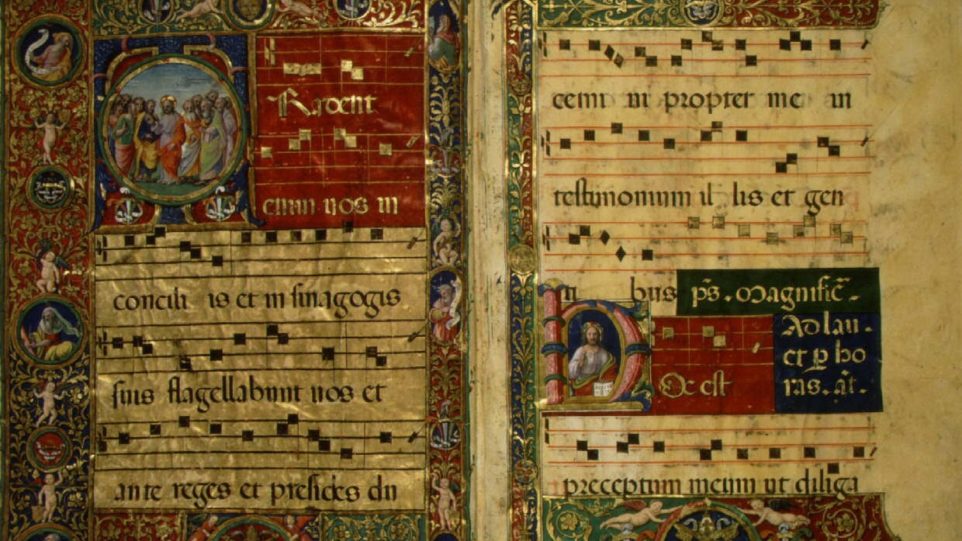 TRadent
enim uos in
concili is et in sinagogis
suis flagellabunt uos et
ante reges et presides du
cemi ni propter me in
testimonium il lis et gen
ti bus p̄s. Magnific̄.
Ad lau.
et ꝑ ho
ras. añ.
HOc est
preceptum meum ut diliga